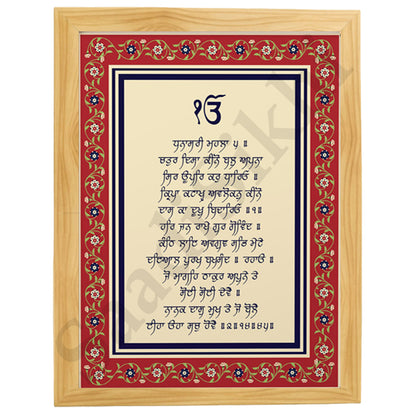 ੴ
ਧਨਾਸਰੀ ਮਹਲਾ ੫ ॥
ਚਤੁਰ ਦਿਸਾ ਕੀਨੋ ਬਲੁ ਅਪਨਾ
ਸਿਰ ਊਪਰਿ ਕਰੁ ਧਾਰਿਓ ॥
ਕ੍ਰਿਪਾ ਕਟਾਖ੍ਯ ਅਵਲੋਕਨੁ ਕੀਨੋ
ਦਾਸ ਕਾ ਦੂਖੁ ਬਿਦਾਰਿਓ ॥੧॥
ਹਰਿ ਜਨ ਰਾਖੇ ਗੁਰ ਗੋਵਿੰਦ ॥
ਕੰਠਿ ਲਾਇ ਅਵਗੁਣ ਸਭਿ ਮੇਟੇ
ਦਇਆਲ ਪੁਰਖ ਬਖਸੰਦ ॥ ਰਹਾਓ ॥
ਜੋ ਮਾਗਹਿ ਠਾਕੁਰ ਅਪੁਨੇ ਤੇ
ਸੋਈ ਸੋਈ ਦੇਵੈ ॥
ਨਾਨਕ ਦਾਸੁ ਮੁਖ ਤੇ ਜੋ ਬੋਲੈ
ਈਹਾ ਊਹਾ ਸਚੁ ਹੋਵੈ ॥੨॥੧੪॥੪੫॥